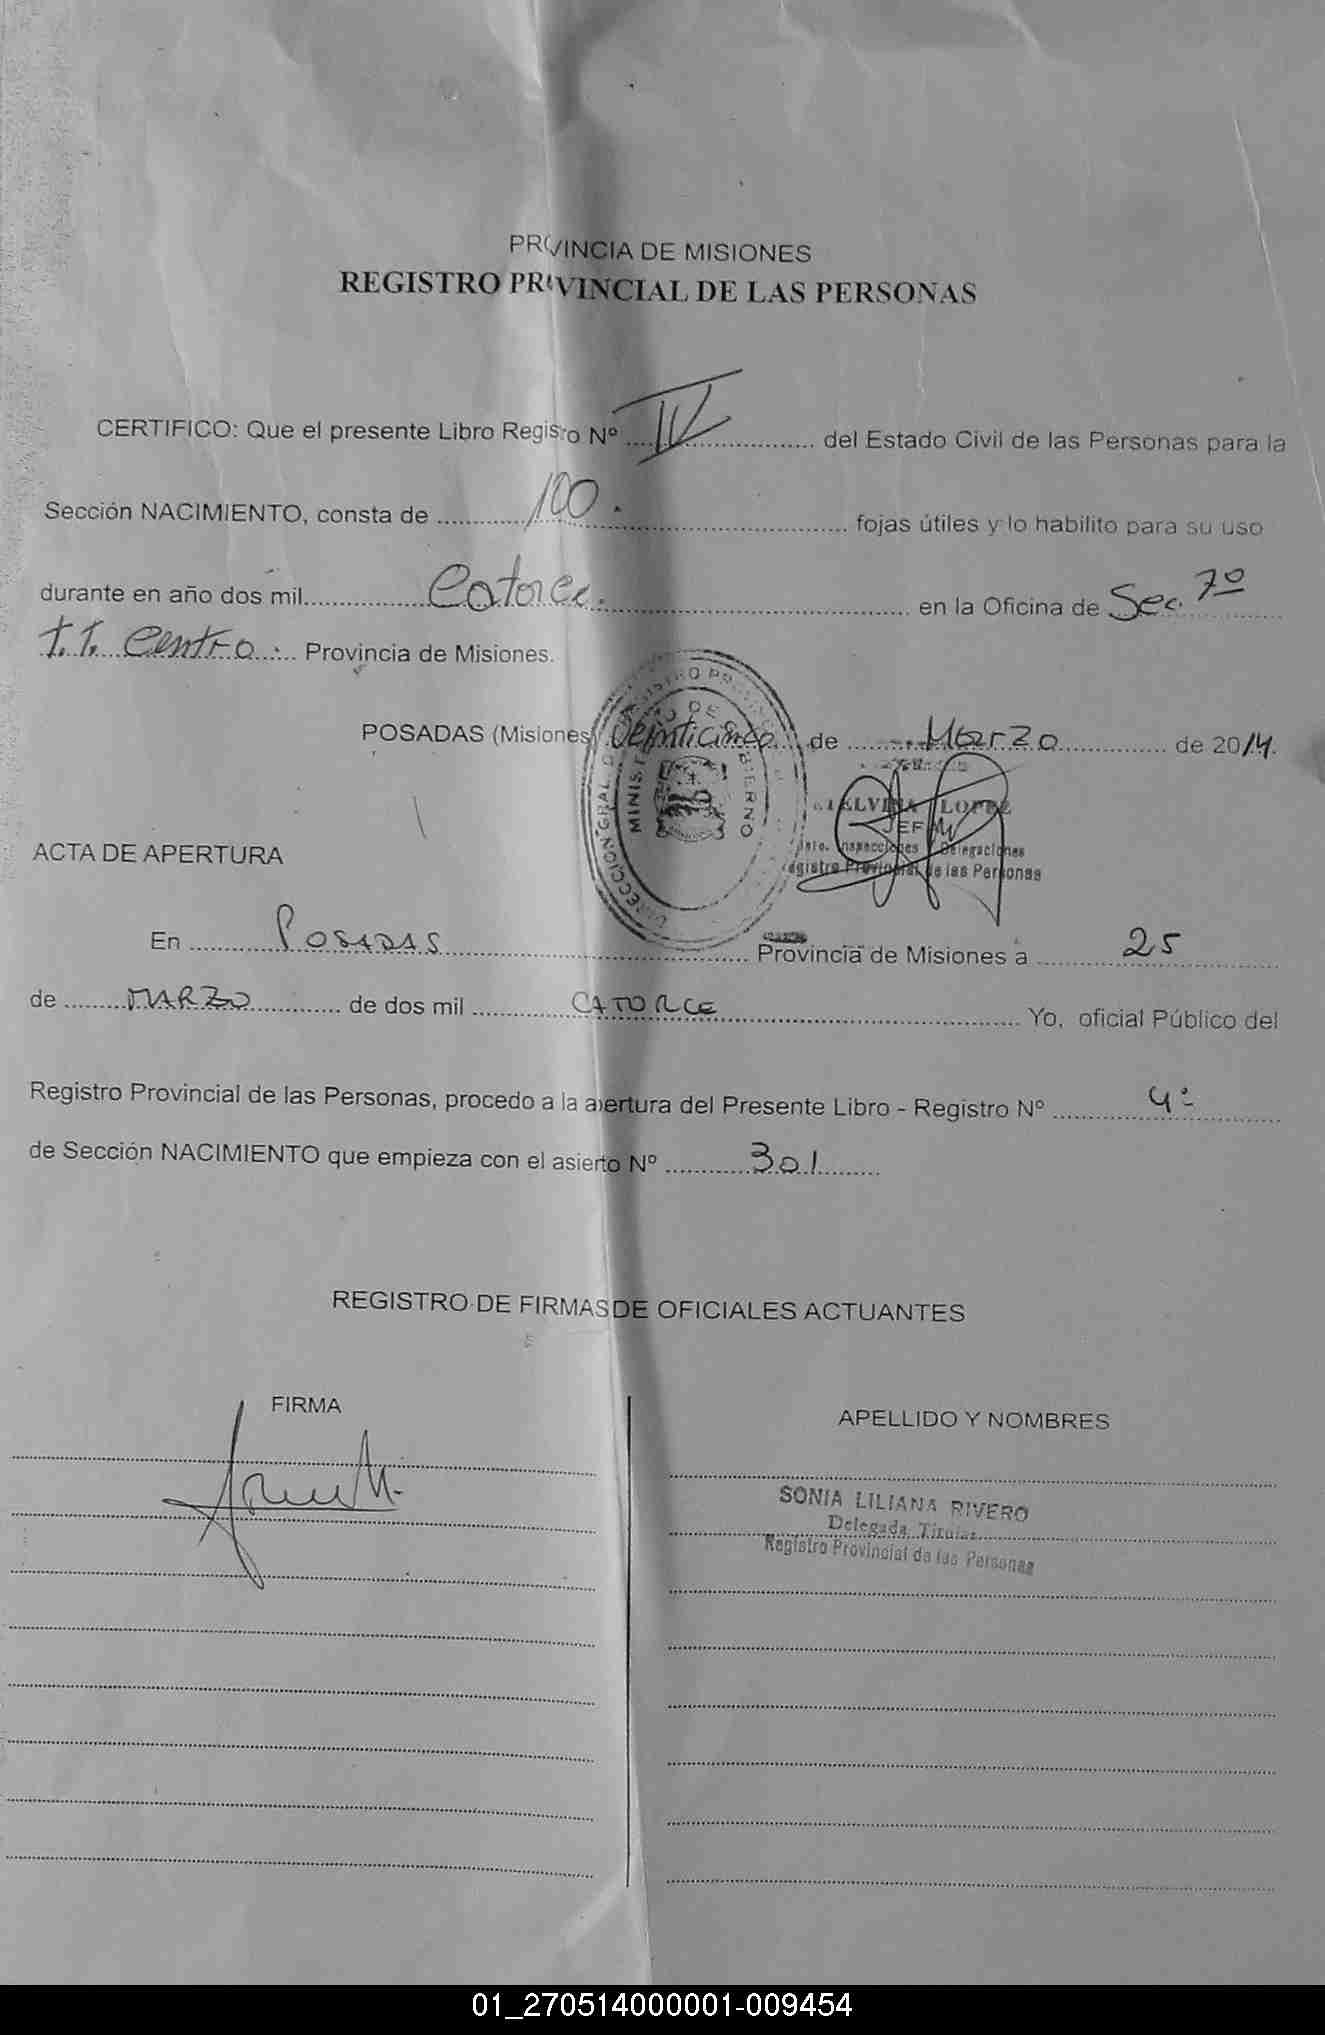 PROVINCIA DE MISIONES
REGISTRO PROVINCIAL DE LAS PERSONAS
CERTIFICO: Que el presente Libro Registro Nº IV del Estado Civil de las Personas para la
Sección NACIMIENTO, consta de 100. fojas útiles y lo habilito para su uso
durante en año dos mil Catorce. en la Oficina de Sec. 7º
T.T. Centro. Provincia de Misiones.
POSADAS (Misiones) Veinticinco de Marzo de 2014.
DIRECCION GRAL. REGISTRO PROVINCIAL
MINISTERIO DE GOBIERNO
ELVIRA LOPEZ
JEFA
Dpto. Inspecciones y Delegaciones
Registro Provincial de las Personas
ACTA DE APERTURA
En POSADAS Provincia de Misiones a 25
de MARZO de dos mil CATORCE Yo, oficial Público del
Registro Provincial de las Personas, procedo a la apertura del Presente Libro - Registro Nº 4º
de Sección NACIMIENTO que empieza con el asierto Nº 301
REGISTRO DE FIRMAS DE OFICIALES ACTUANTES
FIRMA
APELLIDO Y NOMBRES
SONIA LILIANA RIVERO
Delegada Titular
Registro Provincial de las Personas
01_270514000001-009454